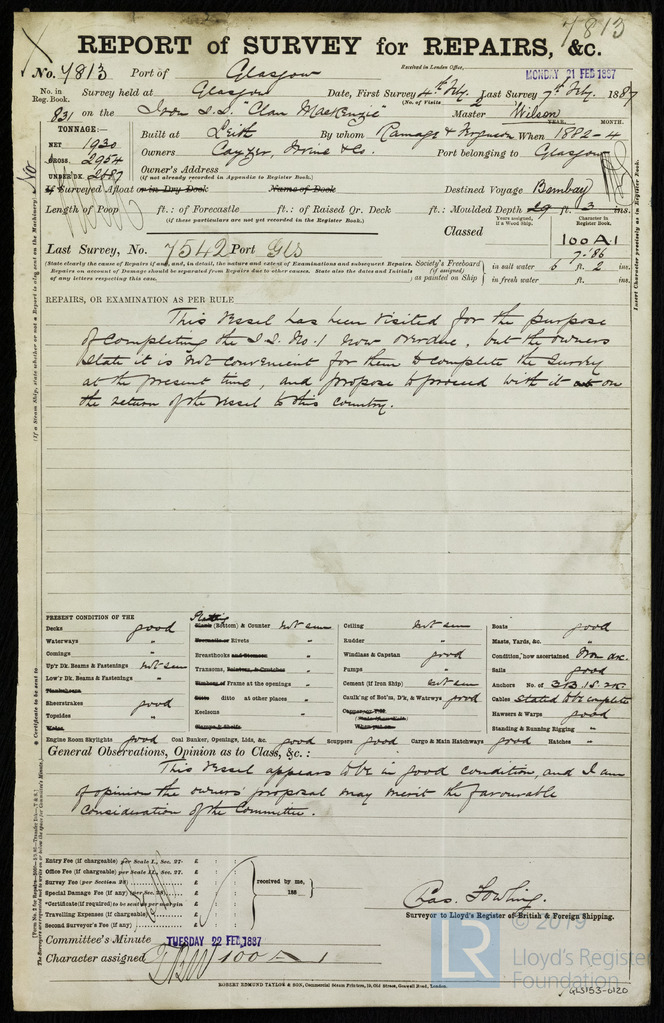 7813
REPORT of SURVEY for REPAIRS, &c.
Received in London Office, MONDAY 21 FEB 1887
No. 7813 Port of Glasgow
No. in Reg. Book. Survey held at Glasgow Date, First Survey 4th Feby. Last Survey 7th Feby. 1887
(No. of Visits 2
831 on the Iron S.S. "Clan MacKenzie" Master Wilson
TONNAGE:—
NET 1930
GROSS. 2954
UNDER DK. 2487
Built at Leith By whom Ramage & Ferguson When 1882-4
YEAR. MONTH.
Owners Cayzer, Irvine & Co. Port belonging to Glasgow
Owner's Address
(if not already recorded in Appendix to Register Book.)
If Surveyed Afloat or in Dry Dock Name of Dock Destined Voyage Bombay
Length of Poop ft.: of Forecastle ft.: of Raised Qr. Deck ft.: Moulded Depth 29 ft. 3 ins.
(if these particulars are not yet recorded in the Register Book.)
Years assigned, if a Wood Ship. Character in Register Book.
Classed 100A1
7.'86
Last Survey, No. 7542 Port Gls
(State clearly the cause of Repairs if any, and, in detail, the nature and extent of Examinations and subsequent Repairs.
Repairs on account of Damage should be separated from Repairs due to other causes. State also the dates and Initials
of any letters respecting this case.
Society's Freeboard (if assigned) as painted on Ship
in salt water 6 ft. 2 ins.
in fresh water ft. ins.
REPAIRS, OR EXAMINATION AS PER RULE
This Vessel has been visited for the purpose
of completing the S.S. No. 1 now overdue, but the owners
state it is not convenient for them to complete the Survey
at the present time, and propose to proceed with it on
the return of the Vessel to this Country.
PRESENT CONDITION OF THE
Decks good
Waterways "
Comings "
Up'r Dk. Beams & Fastenings not seen
Low'r Dk. Beams & Fastenings "
Sheerstrakes good
Topsides "
Plating (Bottom) & Counter not seen
Rivets "
Breasthooks "
Transoms, Pointers, & Crutches "
Frame at the openings "
ditto at other places "
Keelsons "
Ceiling not seen
Rudder "
Windlass & Capstan good
Pumps "
Cement (if Iron Ship) not seen
Caulk'ng of Bot'm, D'k, & Watrwys good
Boats good
Masts, Yards, &c. "
Condition, how ascertained from dk.
Sails good
Anchors No. of 3B.1S.2K.
Cables stated to be complete
Hawsers & Warps good
Standing & Running Rigging "
Engine Room Skylights good Coal Bunker, Openings, Lids, &c. good Scuppers good Cargo & Main Hatchways good Hatches "
General Observations, Opinion as to Class, &c. :
This Vessel appears to be in good condition, and I am
of opinion the owners' proposal may merit the favourable
consideration of the Committee.
Entry Fee (if chargeable) per Scale I., Sec. 27. £ : :
Office Fee (if chargeable) per Scale II., Sec. 27. £ : :
Survey Fee (per Section 28) £ : :
Special Damage Fee (if any) (per Sec. 28) £ : :
*Certificate (if required) to be sent as per margin £ : :
Travelling Expenses (if chargeable) £ : :
Second Surveyor's Fee (if any) £ : :
received by me,
188
Chas. Fowling.
Surveyor to Lloyd's Register of British & Foreign Shipping.
Committee's Minute TUESDAY 22 FEB 1887
Character assigned 100 A 1
ROBERT EDMUND TAYLOR & SON, Commercial Steam Printers, 19, Old Street, Goswell Road, London.
© 2019
LR
Lloyd's Register
Foundation
GLS153-0120
(If a Steam Ship, state whether or not a Report is also sent on the Machinery) No
Insert Character precisely as in Register Book.
* Certificate to be sent to